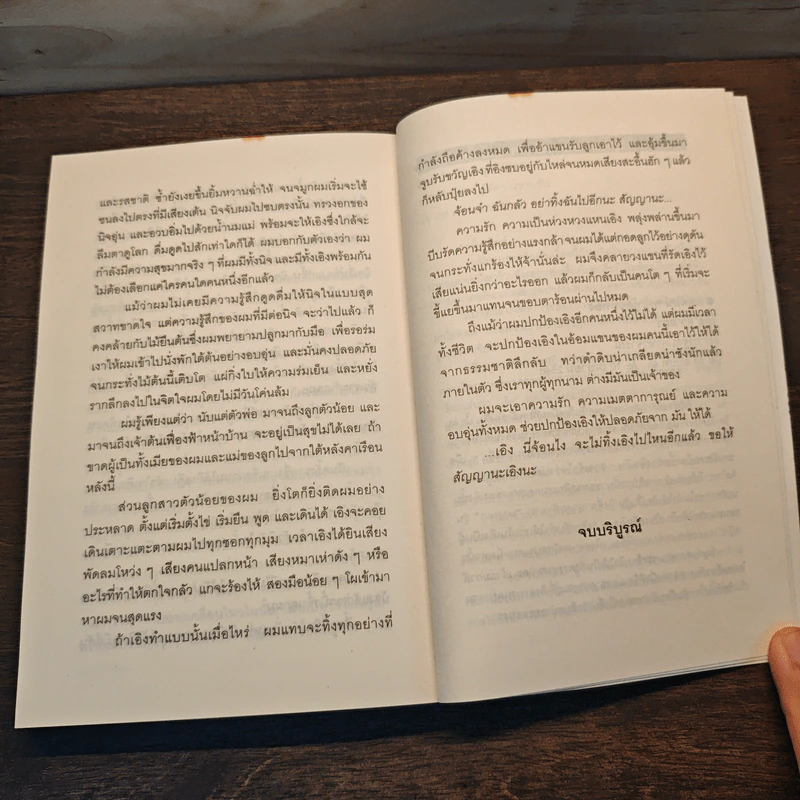 และรสชาติ ซ้ำยังเงยขึ้นยิ้มหวานฉ่ำให้ จนจมูกผมเริ่มจะใช้
ชนลงไปตรงที่มีเสียงเต้น นิจจับผมไปซบตรงนั้น ทรวงอกของ
นิจอุ่น และอวบอิ่มไปด้วยน้ำนมแม่ พร้อมจะให้เอิงซึ่งใกล้จะ
ลืมตาดูโลก ดื่มดูดไปสักเท่าใดก็ได้ ผมบอกกับตัวเองว่า ผม
กำลังมีความสุขมากจริง ๆ ที่ผมมีทั้งนิจ และมีทั้งเอิงพร้อมกัน
ไม่ต้องเลือกแค่ใครคนใดคนหนึ่งอีกแล้ว
แม้ว่าผมไม่เคยมีความรู้สึกดูดดื่มให้นิจในแบบสุด
สวาทขาดใจ แต่ความรู้สึกของผมที่มีต่อนิจ จะว่าไปแล้ว ก็
คงคล้ายกับไม้ยืนต้นซึ่งผมพยายามปลูกมากับมือ เพื่อรอร่ม
เงาให้ผมเข้าไปนั่งพักใต้ต้นอย่างอบอุ่น และมั่นคงปลอดภัย
จนกระทั่งไม้ต้นนี้เติบโต แผ่กิ่งใบให้ความร่มเย็น และหยั่ง
รากลึกลงไปในจิตใจผมโดยไม่มีวันโค่นล้ม
ผมรู้เพียงแต่ว่า นับแต่ตัวพ่อ มาจนถึงลูกตัวน้อย และ
มาจนถึงเจ้าต้นเฟื่องฟ้าหน้าบ้าน จะอยู่เป็นสุขไม่ได้เลย ถ้า
ขาดผู้เป็นทั้งเมียของผมและแม่ของลูกไปจากใต้หลังคาเรือน
หลังนี้
ส่วนลูกสาวตัวน้อยของผม ยิ่งโตก็ยิ่งติดผมอย่าง
ประหลาด ตั้งแต่เริ่มตั้งไข่ เริ่มยืน พูด และเดินได้ เอิงจะคอย
เดินเตาะแตะตามผมไปทุกซอกทุกมุม เวลาเอิงได้ยินเสียง
พัดลมโหว่ง ๆ เสียงคนแปลกหน้า เสียงหมาเห่าดัง ๆ หรือ
อะไรที่ทำให้ตกใจกลัว แกจะร้องไห้ สองมือน้อย ๆ โผเข้ามา
หาผมจนสุดแรง
ถ้าเอิงทำแบบนั้นเมื่อไหร่ ผมแทบจะทิ้งทุกอย่างที่
กำลังถือค้างลงหมด เพื่ออ้าแขนรับลูกเอาไว้ และอุ้มขึ้นมา
จูบรับขวัญเอิง ที่อิงซบอยู่กับไหล่จนหมดเสียงสะอื้นฮัก ๆ แล้ว
ก็หลับปุ๋ยลงไป
จ้อนจ๋า ฉันกลัว อย่าทิ้งฉันไปอีกนะ สัญญานะ...
ความรัก ความเป็นห่วงหวงแหนเอิง พลุ่งพล่านขึ้นมา
บีบรัดความรู้สึกอย่างแรงกล้า จนผมได้แต่กอดลูกไว้อย่างดุดัน
จนกระทั่งแกร้องไห้จ้านั่นล่ะ ผมจึงคลายวงแขนที่รัดเอิงไว้
เสียแน่นยิ่งกว่าอะไรออก แล้วผมก็กลับเป็นคนโต ๆ ที่เริ่มจะ
ขี้แยขึ้นมาแทนจนขอบตาร้อนผ่าวไปหมด
ถึงแม้ว่าผมปกป้องเอิงอีกคนหนึ่งไว้ไม่ได้ แต่ผมมีเวลา
ทั้งชีวิต จะปกป้องเอิงในอ้อมแขนของผมคนนี้เอาไว้ให้ได้
จากธรรมชาติลึกลับ ทว่าดำดิบน่าเกลียดน่าชังนักแล้ว
ภายในตัว ซึ่งเราทุกผู้ทุกนาม ต่างมีมันเป็นเจ้าของ
ผมจะเอาความรัก ความเมตตาการุณย์ และความ
อบอุ่นทั้งหมด ช่วยปกป้องเอิงให้ปลอดภัยจาก มัน ให้ได้
...เอิง นี่จ้อนไง จะไม่ทิ้งเอิงไปไหนอีกแล้ว ขอให้
สัญญานะเอิงนะ
จบบริบูรณ์